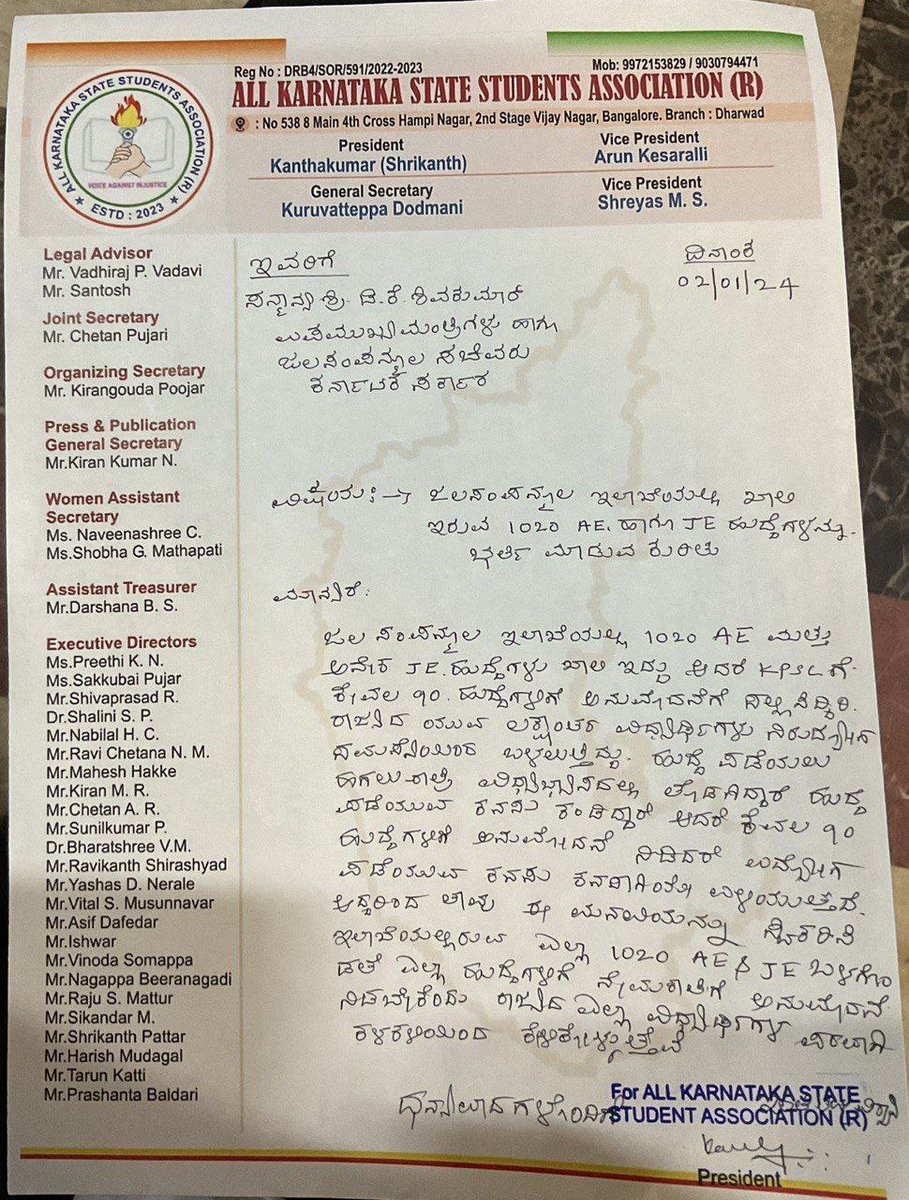 Reg No : DRB4/SOR/591/2022-2023
Mob: 9972153829 / 9030794471
ALL KARNATAKA STATE STUDENTS ASSOCIATION (R)
: No 538 8 Main 4th Cross Hampi Nagar, 2nd Stage Vijay Nagar, Bangalore. Branch : Dharwad
President
Kanthakumar (Shrikanth)
Vice President
Arun Kesaralli
General Secretary
Kuruvatteppa Dodmani
Vice President
Shreyas M. S.
ALL KARNATAKA STATE STUDENTS ASSOCIATION (R)
VOICE AGAINST INJUSTICE
ESTD : 2023
Legal Advisor
Mr. Vadhiraj P. Vadavi
Mr. Santosh
Joint Secretary
Mr. Chetan Pujari
Organizing Secretary
Mr. Kirangouda Poojar
Press & Publication
General Secretary
Mr.Kiran Kumar N.
Women Assistant
Secretary
Ms. Naveenashree C.
Ms.Shobha G. Mathapati
Assistant Treasurer
Mr.Darshana B. S.
Executive Directors
Ms.Preethi K. N.
Ms.Sakkubai Pujar
Mr.Shivaprasad R.
Dr.Shalini S. P.
Mr.Nabilal H. C.
Mr.Ravi Chetana N. M.
Mr.Mahesh Hakke
Mr.Kiran M. R.
Mr.Chetan A. R.
Mr.Sunilkumar P.
Dr.Bharatshree V.M.
Mr.Ravikanth Shirashyad
Mr.Yashas D. Nerale
Mr.Vital S. Musunnavar
Mr.Asif Dafedar
Mr.Ishwar
Mr.Vinoda Somappa
Mr.Nagappa Beeranagadi
Mr.Raju S. Mattur
Mr.Sikandar M.
Mr.Shrikanth Pattar
Mr.Harish Mudagal
Mr.Tarun Katti
Mr.Prashanta Baldari
ಇವರಿಗೆ
ದಿನಾಂಕ
02/01/24
ಸನ್ಮಾನ್ಯ ಶ್ರೀ ಡಿ.ಕೆ. ಶಿವಕುಮಾರ್
ಉಪಮುಖ್ಯಮಂತ್ರಿಗಳು ಹಾಗೂ
ಜಲಸಂಪನ್ಮೂಲ ಸಚಿವರು
ಕರ್ನಾಟಕ ಸರ್ಕಾರ
ವಿಷಯ :→ ಜಲಸಂಪನ್ಮೂಲ ಇಲಾಖೆಯಲ್ಲಿ ಖಾಲಿ
ಇರುವ 1020 AE. ಹಾಗೂ JE ಹುದ್ದೆಗಳನ್ನು.
ಭರ್ತಿ ಮಾಡುವ ಕುರಿತು
ಮಾನ್ಯರೆ.
ಜಲ ಸಂಪನ್ಮೂಲ ಇಲಾಖೆಯಲ್ಲಿ 1020 AE ಮತ್ತು
JE. ಹುದ್ದೆಗಳು ಖಾಲಿ ಇದ್ದು ಆದರೆ KPSC ಗೆ
ಕೇವಲ ೪೦. ಹುದ್ದೆಗಳಿಗೆ ಅನುಮೋದನೆಗೆ
ರಾಜ್ಯದ ಯುವ ಲಕ್ಷಾಂತರ ವಿದ್ಯಾರ್ಥಿಗಳು ನಿರುದ್ಯೋಗ
ಬಳಲುತ್ತಿದ್ದು. ಹುದ್ದೆ ಪಡೆಯಲು
ಹಗಲು ರಾತ್ರಿ ತೊಡಗಿದ್ದಾರೆ ಹುದ್ದೆ
ಪಡೆಯುವ ಕನಸು ಕಂಡಿದ್ದಾರೆ ಆದರೆ ಕೇವಲ ೪೦
ಹುದ್ದೆಗಳಿಗೆ ಅನುಮೋದನೆ ನೀಡಿದರೆ ಉದ್ಯೋಗ
ಪಡೆಯುವ ಕನಸು ಕನಸಾಗಿಯೇ ಉಳಿಯುತ್ತದೆ.
ಆದ್ದರಿಂದ ತಾವು ಈ ಮನವಿಯನ್ನು
ಇಲಾಖೆಯಲ್ಲಿರುವ ಎಲ್ಲಾ 1020 AE & JE
ಎಲ್ಲಾ ಹುದ್ದೆಗಳಿಗೆ ನೇಮಕಾತಿಗೆ ಅನುಮೋದನೆ
ನೀಡಬೇಕೆಂದು ರಾಜ್ಯದ ಎಲ್ಲಾ ವಿದ್ಯಾರ್ಥಿಗಳ ಪರವಾಗಿ
ಕಳಕಳಿಯಿಂದ ಕೇಳಿಕೊಳ್ಳುತ್ತೇವೆ
ಧನ್ಯವಾದಗಳೊಂದಿಗೆ
For ALL KARNATAKA STATE
STUDENT ASSOCIATION (R)
President